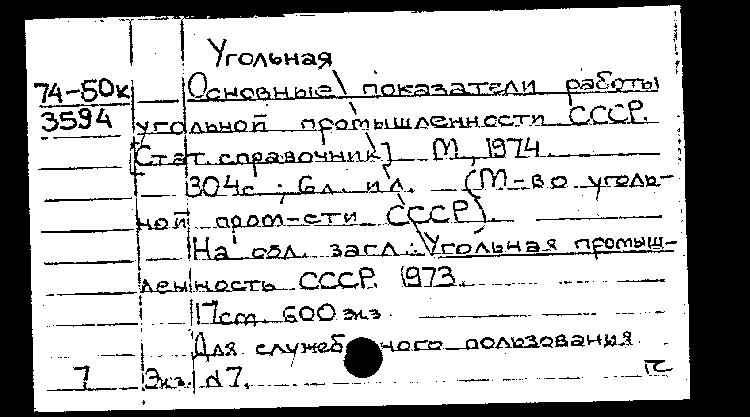 Угольная
74-50к Основные показатели работы
3594 угольной промышленности СССР.
[Стат. справочник] М., 1974.
304с.; 6л. ил. (М-во уголь-
ной пром-сти СССР).
На обл. загл.: Угольная промыш-
ленность СССР. 1973.
17cm. 600 экз.
Для служебного пользования
7 Экз. №7.